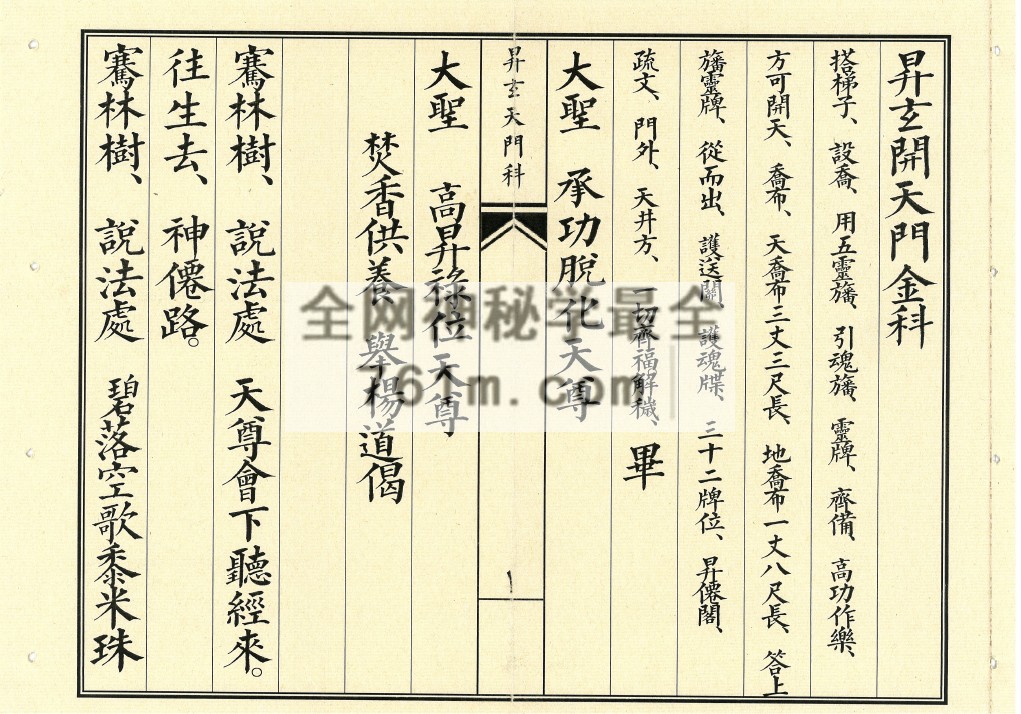 昇玄開天門金科
搭梯子、設喬、用五靈旛、引魂旛、靈牌、齊備、高功作樂、
方可開天、喬布、天喬布三丈三尺長、地喬布一丈八尺長、答上
旛靈牌、從而出、護送關、護魂牒、三十二牌位、昇僊閣、
疏文、門外、天井方、一切齊福解穢、畢
大聖 承功脫化天尊
昇玄天門科
一
大聖 高昇祿位天尊
焚香供養 舉楊道偈
騫林樹、說法處 天尊會下聽經來。
往生去、神僊路。
騫林樹、說法處 碧落空歌黍米珠
全网神秘学最全
76fm.com